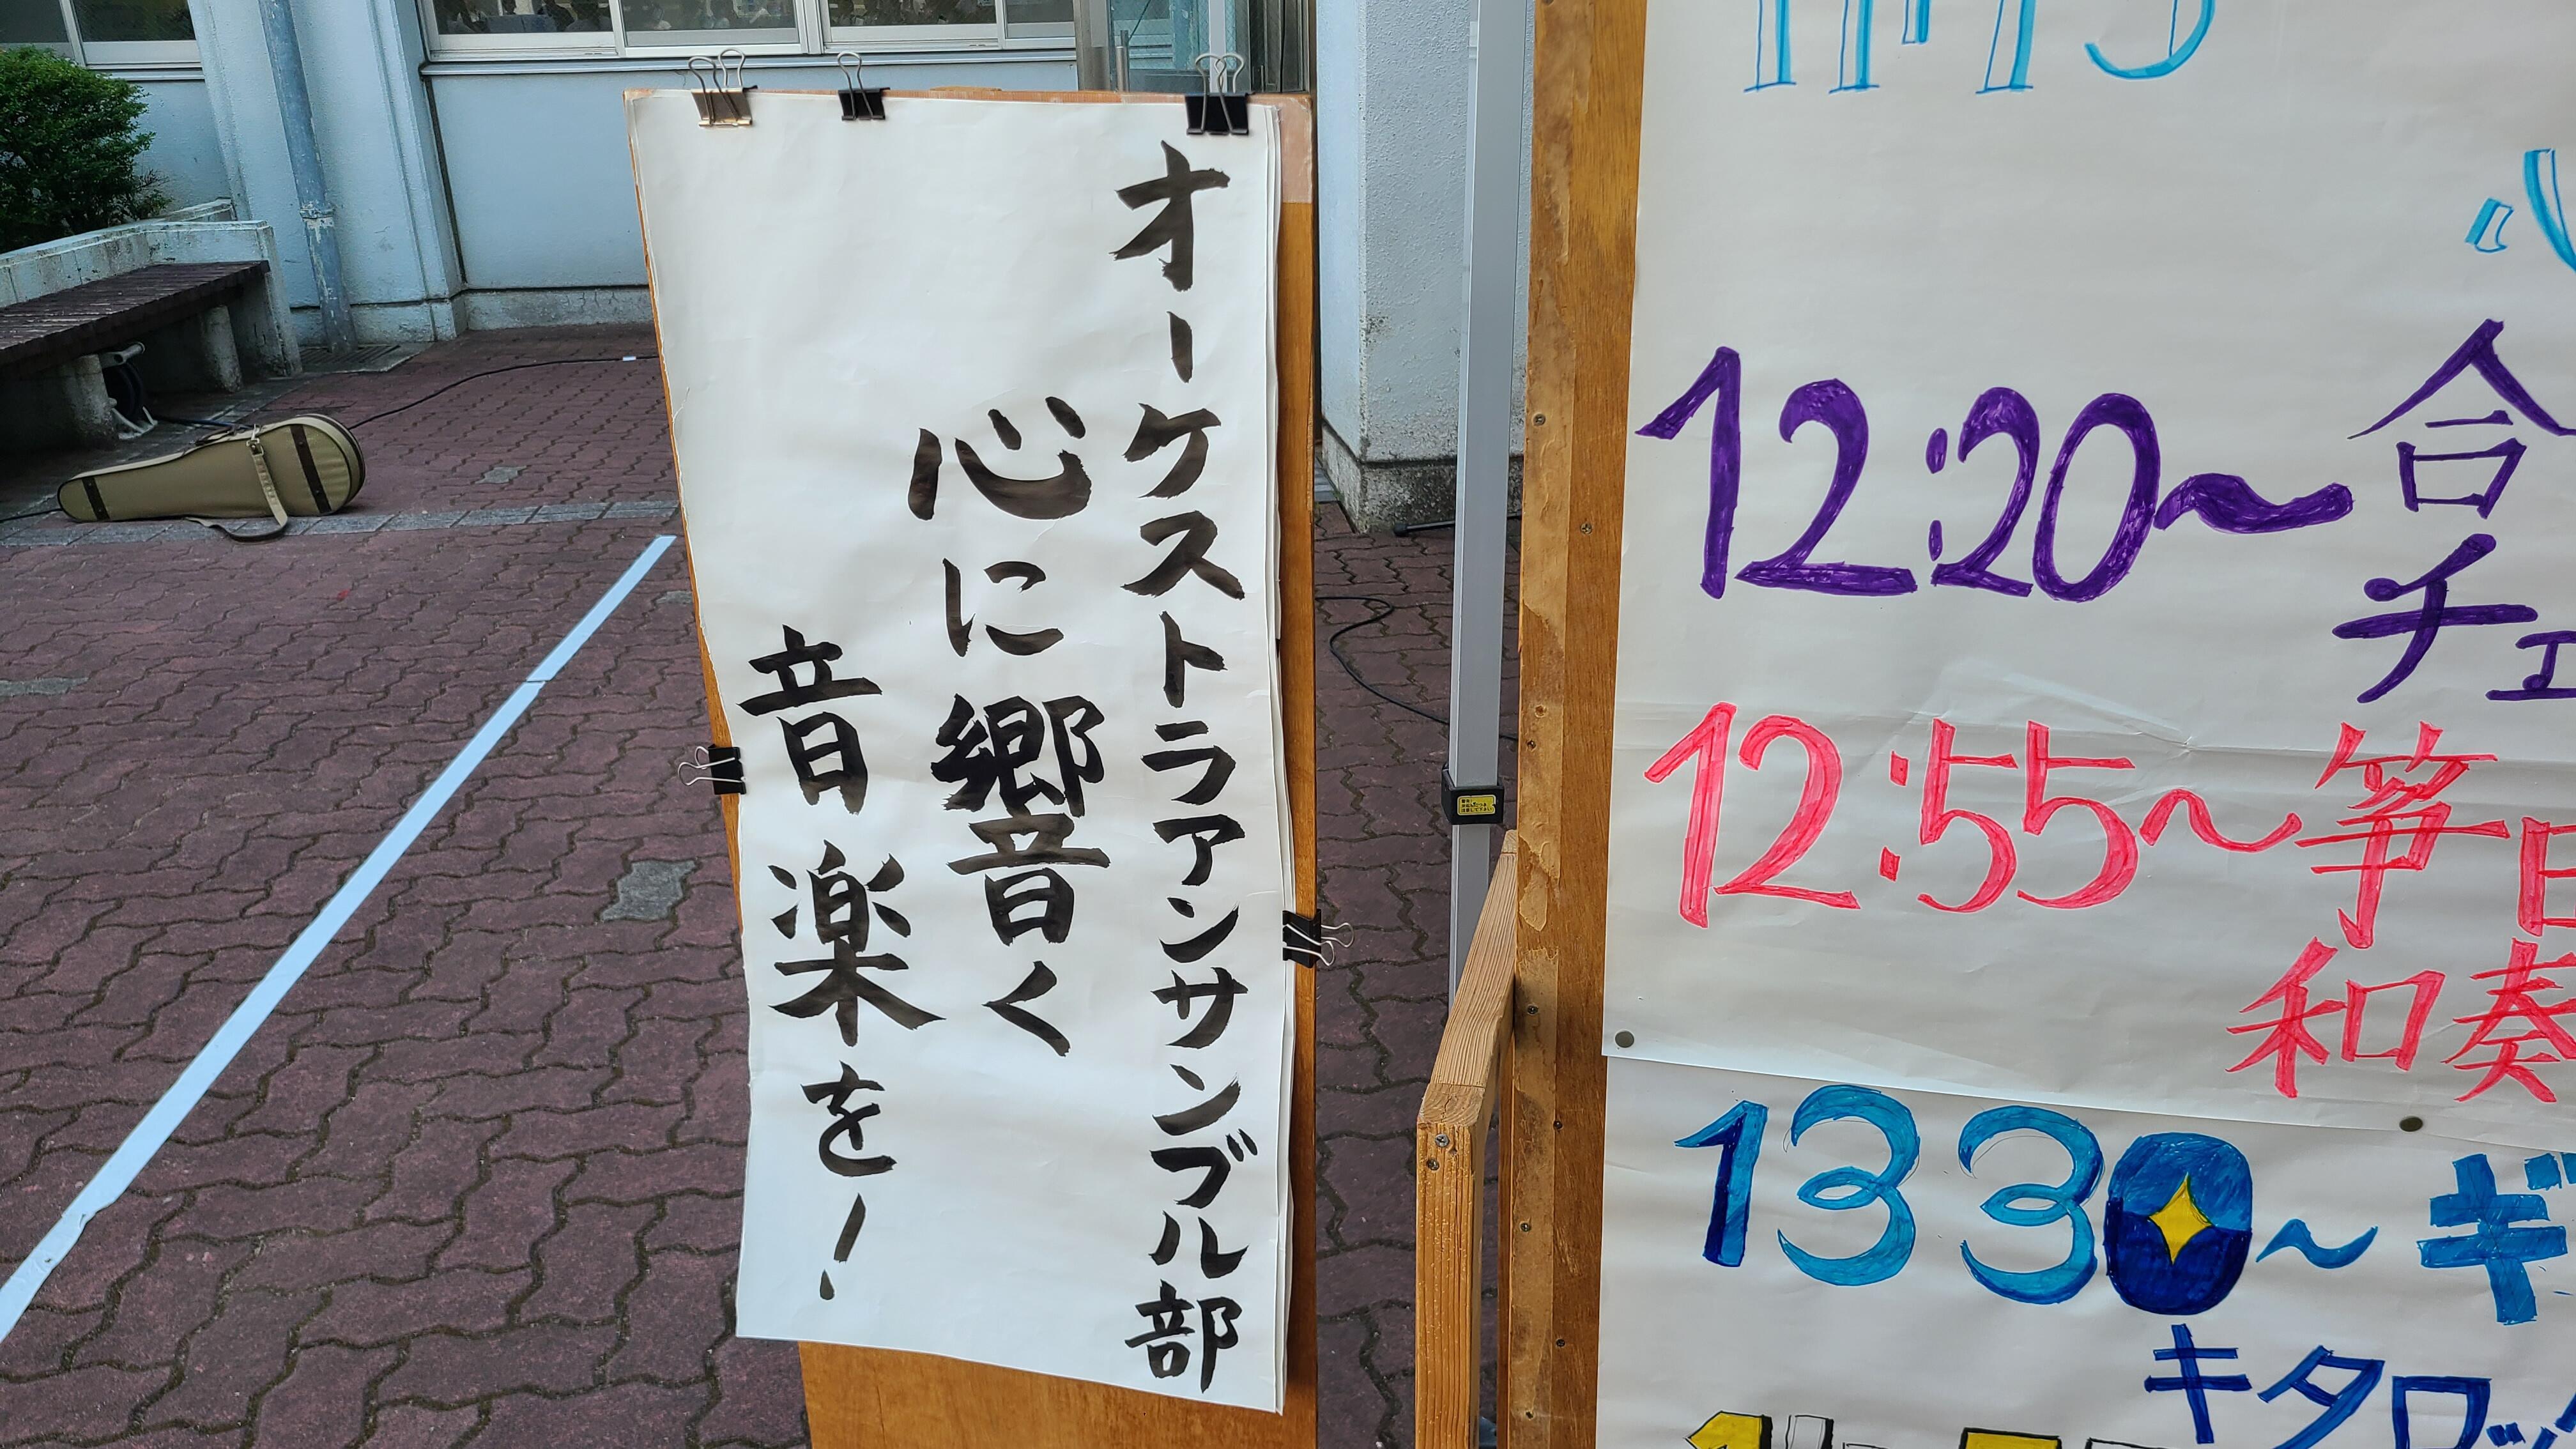 オーケストラアンサンブル部
心に響く
音楽を!
12:20～合
チェ
12:55～箏
和奏
1330～ギ
キタロッ